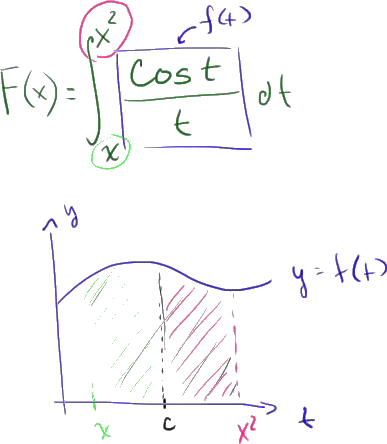 f(t)
F(x) = ∫ₓ^x² cos t / t dt
y
y = f(t)
x c x² t